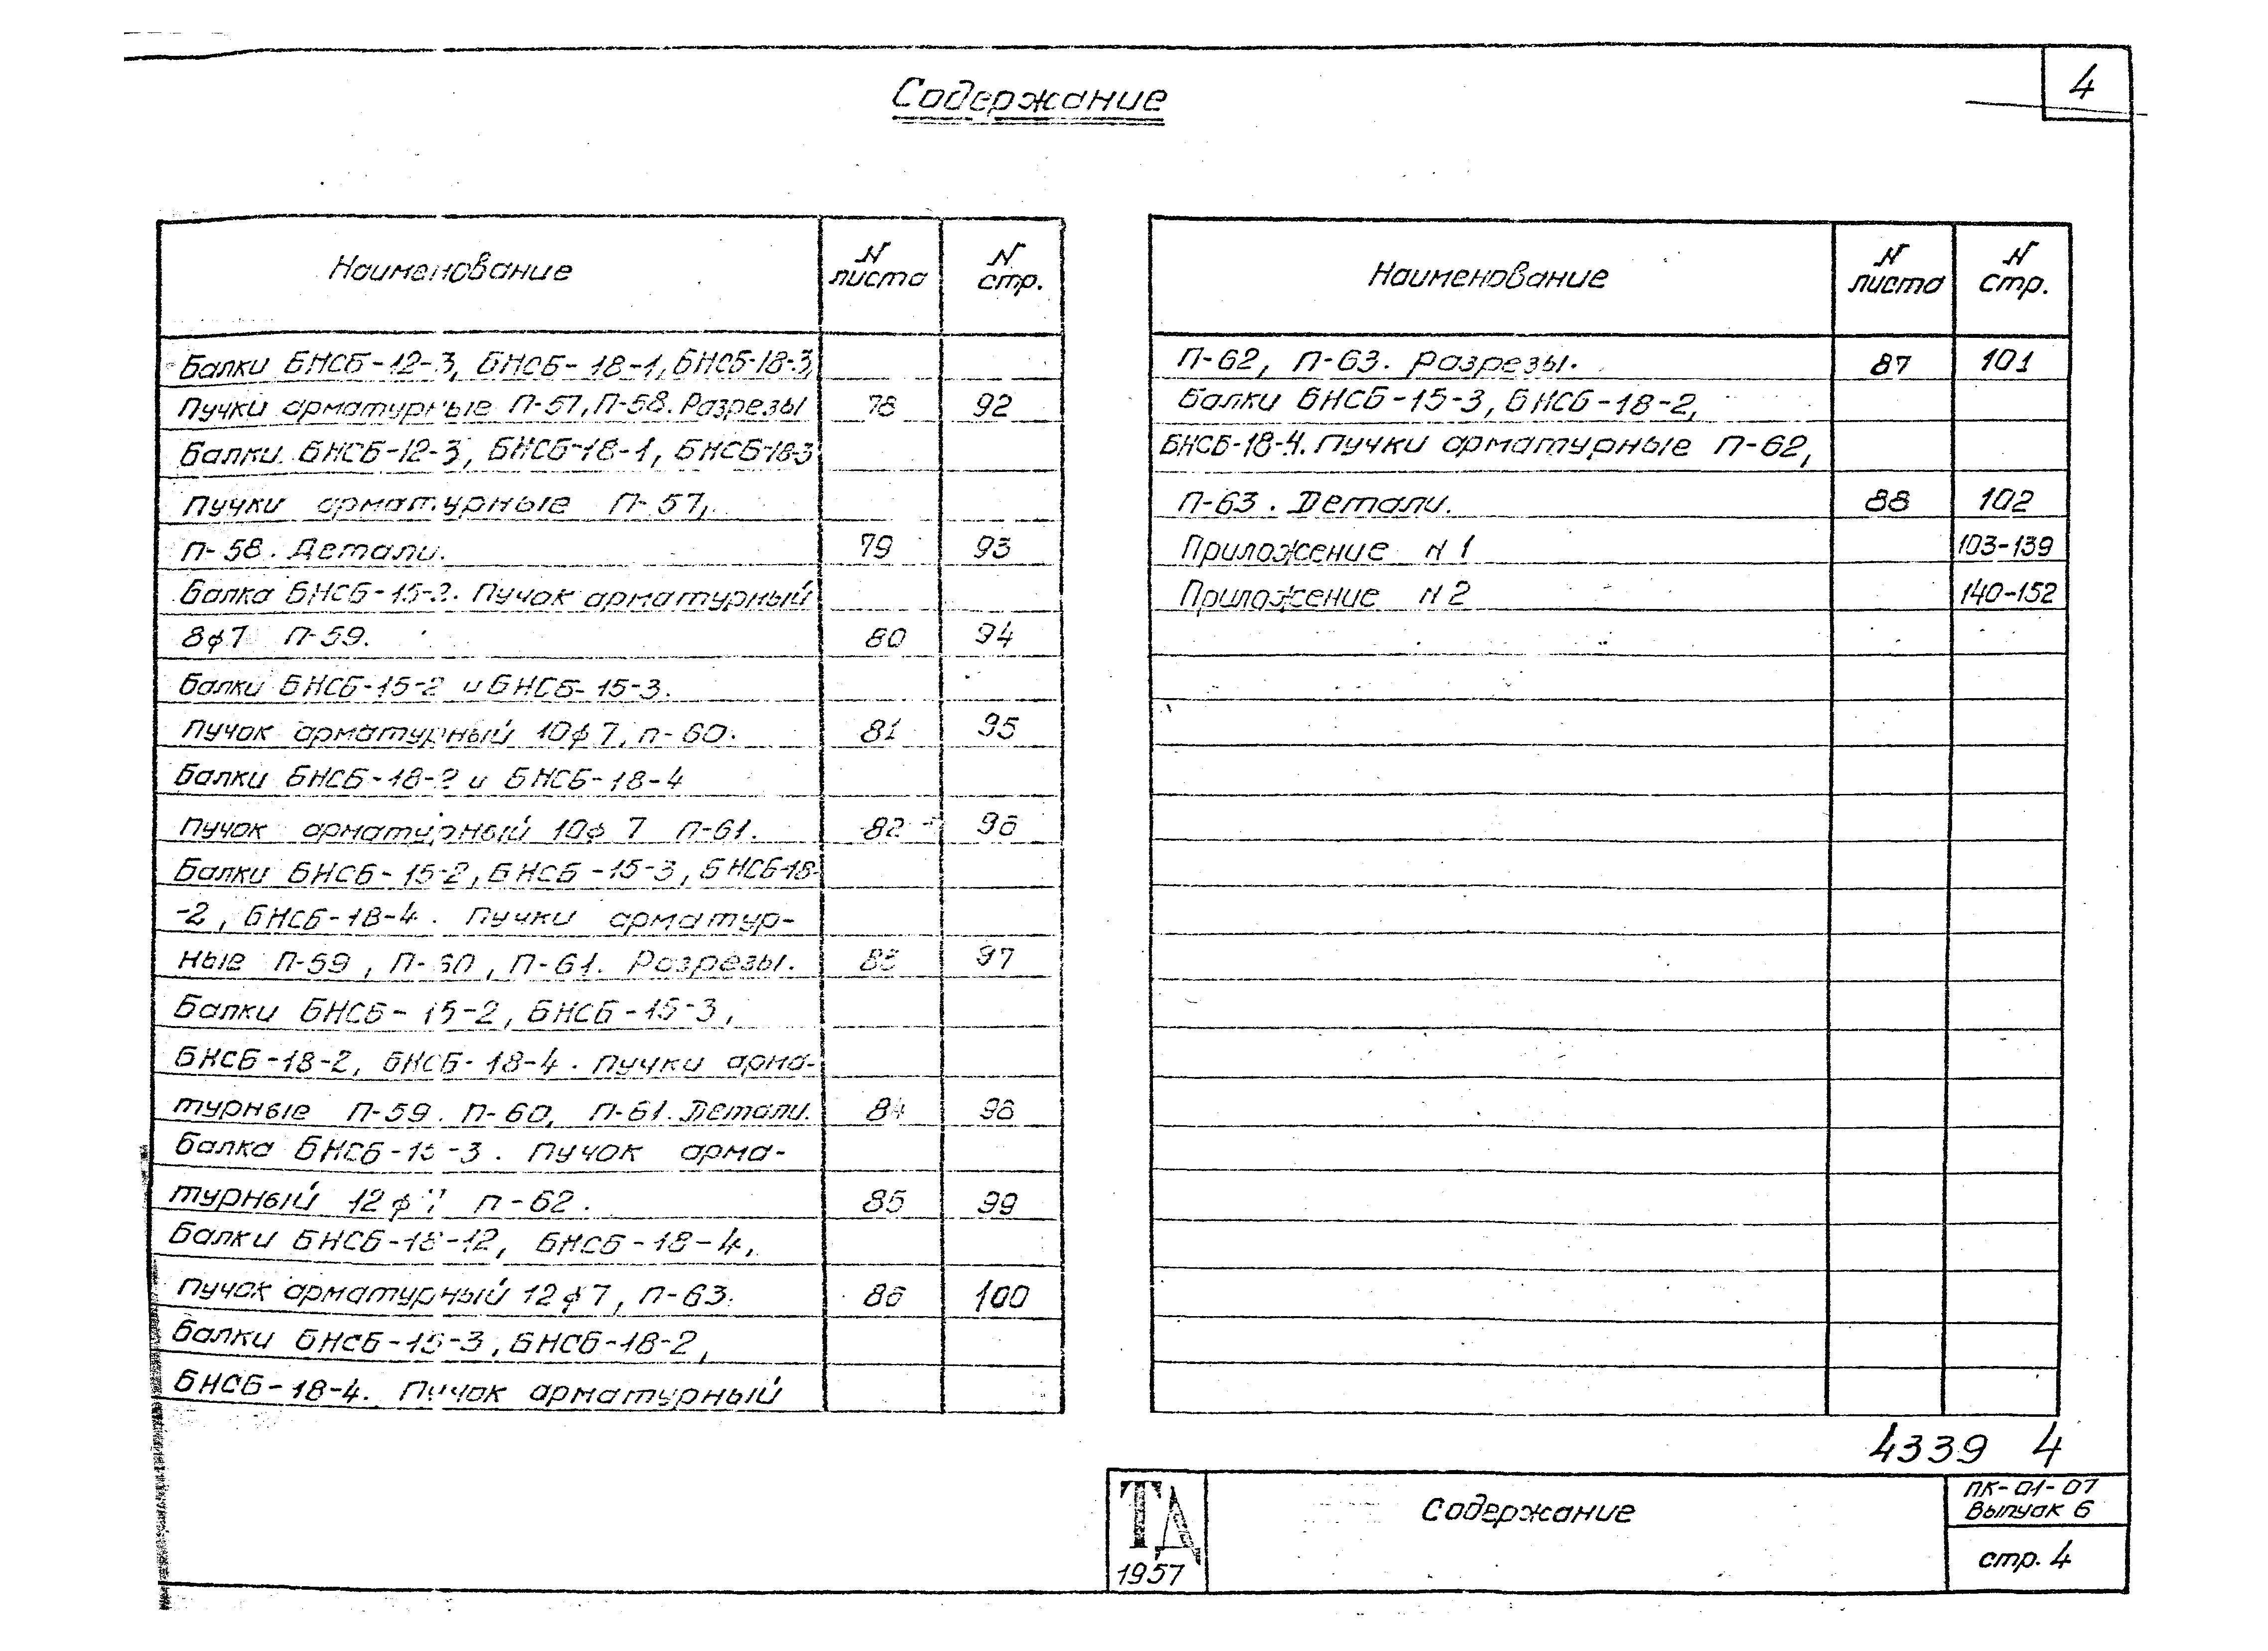 4
Содержание
Наименование N листа N стр.
Балки БНСБ-12-3, БНСБ-18-1, БНСБ-18-3,
Пучки арматурные П-57, П-58. Разрезы 78 92
Балки БНСБ-12-3, БНСБ-18-1, БНСБ-18-3
Пучки арматурные П-57,
П-58. Детали. 79 93
Балка БНСБ-15-2. Пучок арматурный
8ϕ7 П-59. 80 94
Балки БНСБ-15-2 и БНСБ-15-3.
Пучок арматурный 10ϕ7, п-60. 81 95
Балки БНСБ-18-2 и БНСБ-18-4
Пучок арматурный 10ϕ7 п-61. 82 96
Балки БНСБ-15-2, БНСБ-15-3, БНСБ-18-
-2, БНСБ-18-4. Пучки арматур-
ные П-59, П-60, П-61. Разрезы. 83 97
Балки БНСБ-15-2, БНСБ-15-3,
БНСБ-18-2, БНСБ-18-4. Пучки арма-
турные П-59. П-60, П-61. Детали. 84 98
Балка БНСБ-15-3. Пучок арма-
турный 12ϕ7 п-62. 85 99
Балки БНСБ-18-12, БНСБ-18-4,
Пучок арматурный 12ϕ7, п-63. 86 100
Балки БНСБ-15-3, БНСБ-18-2,
БНСБ-18-4. Пучок арматурный
Наименование N листа N стр.
П-62, П-63. Разрезы. 87 101
Балки БНСБ-15-3, БНСБ-18-2,
БНСБ-18-4. Пучки арматурные П-62,
П-63. Детали. 88 102
Приложение N 1 103-139
Приложение N 2 140-152
4339 4
ТД
1957
Содержание
ПК-01-07
Выпуск 6
стр. 4